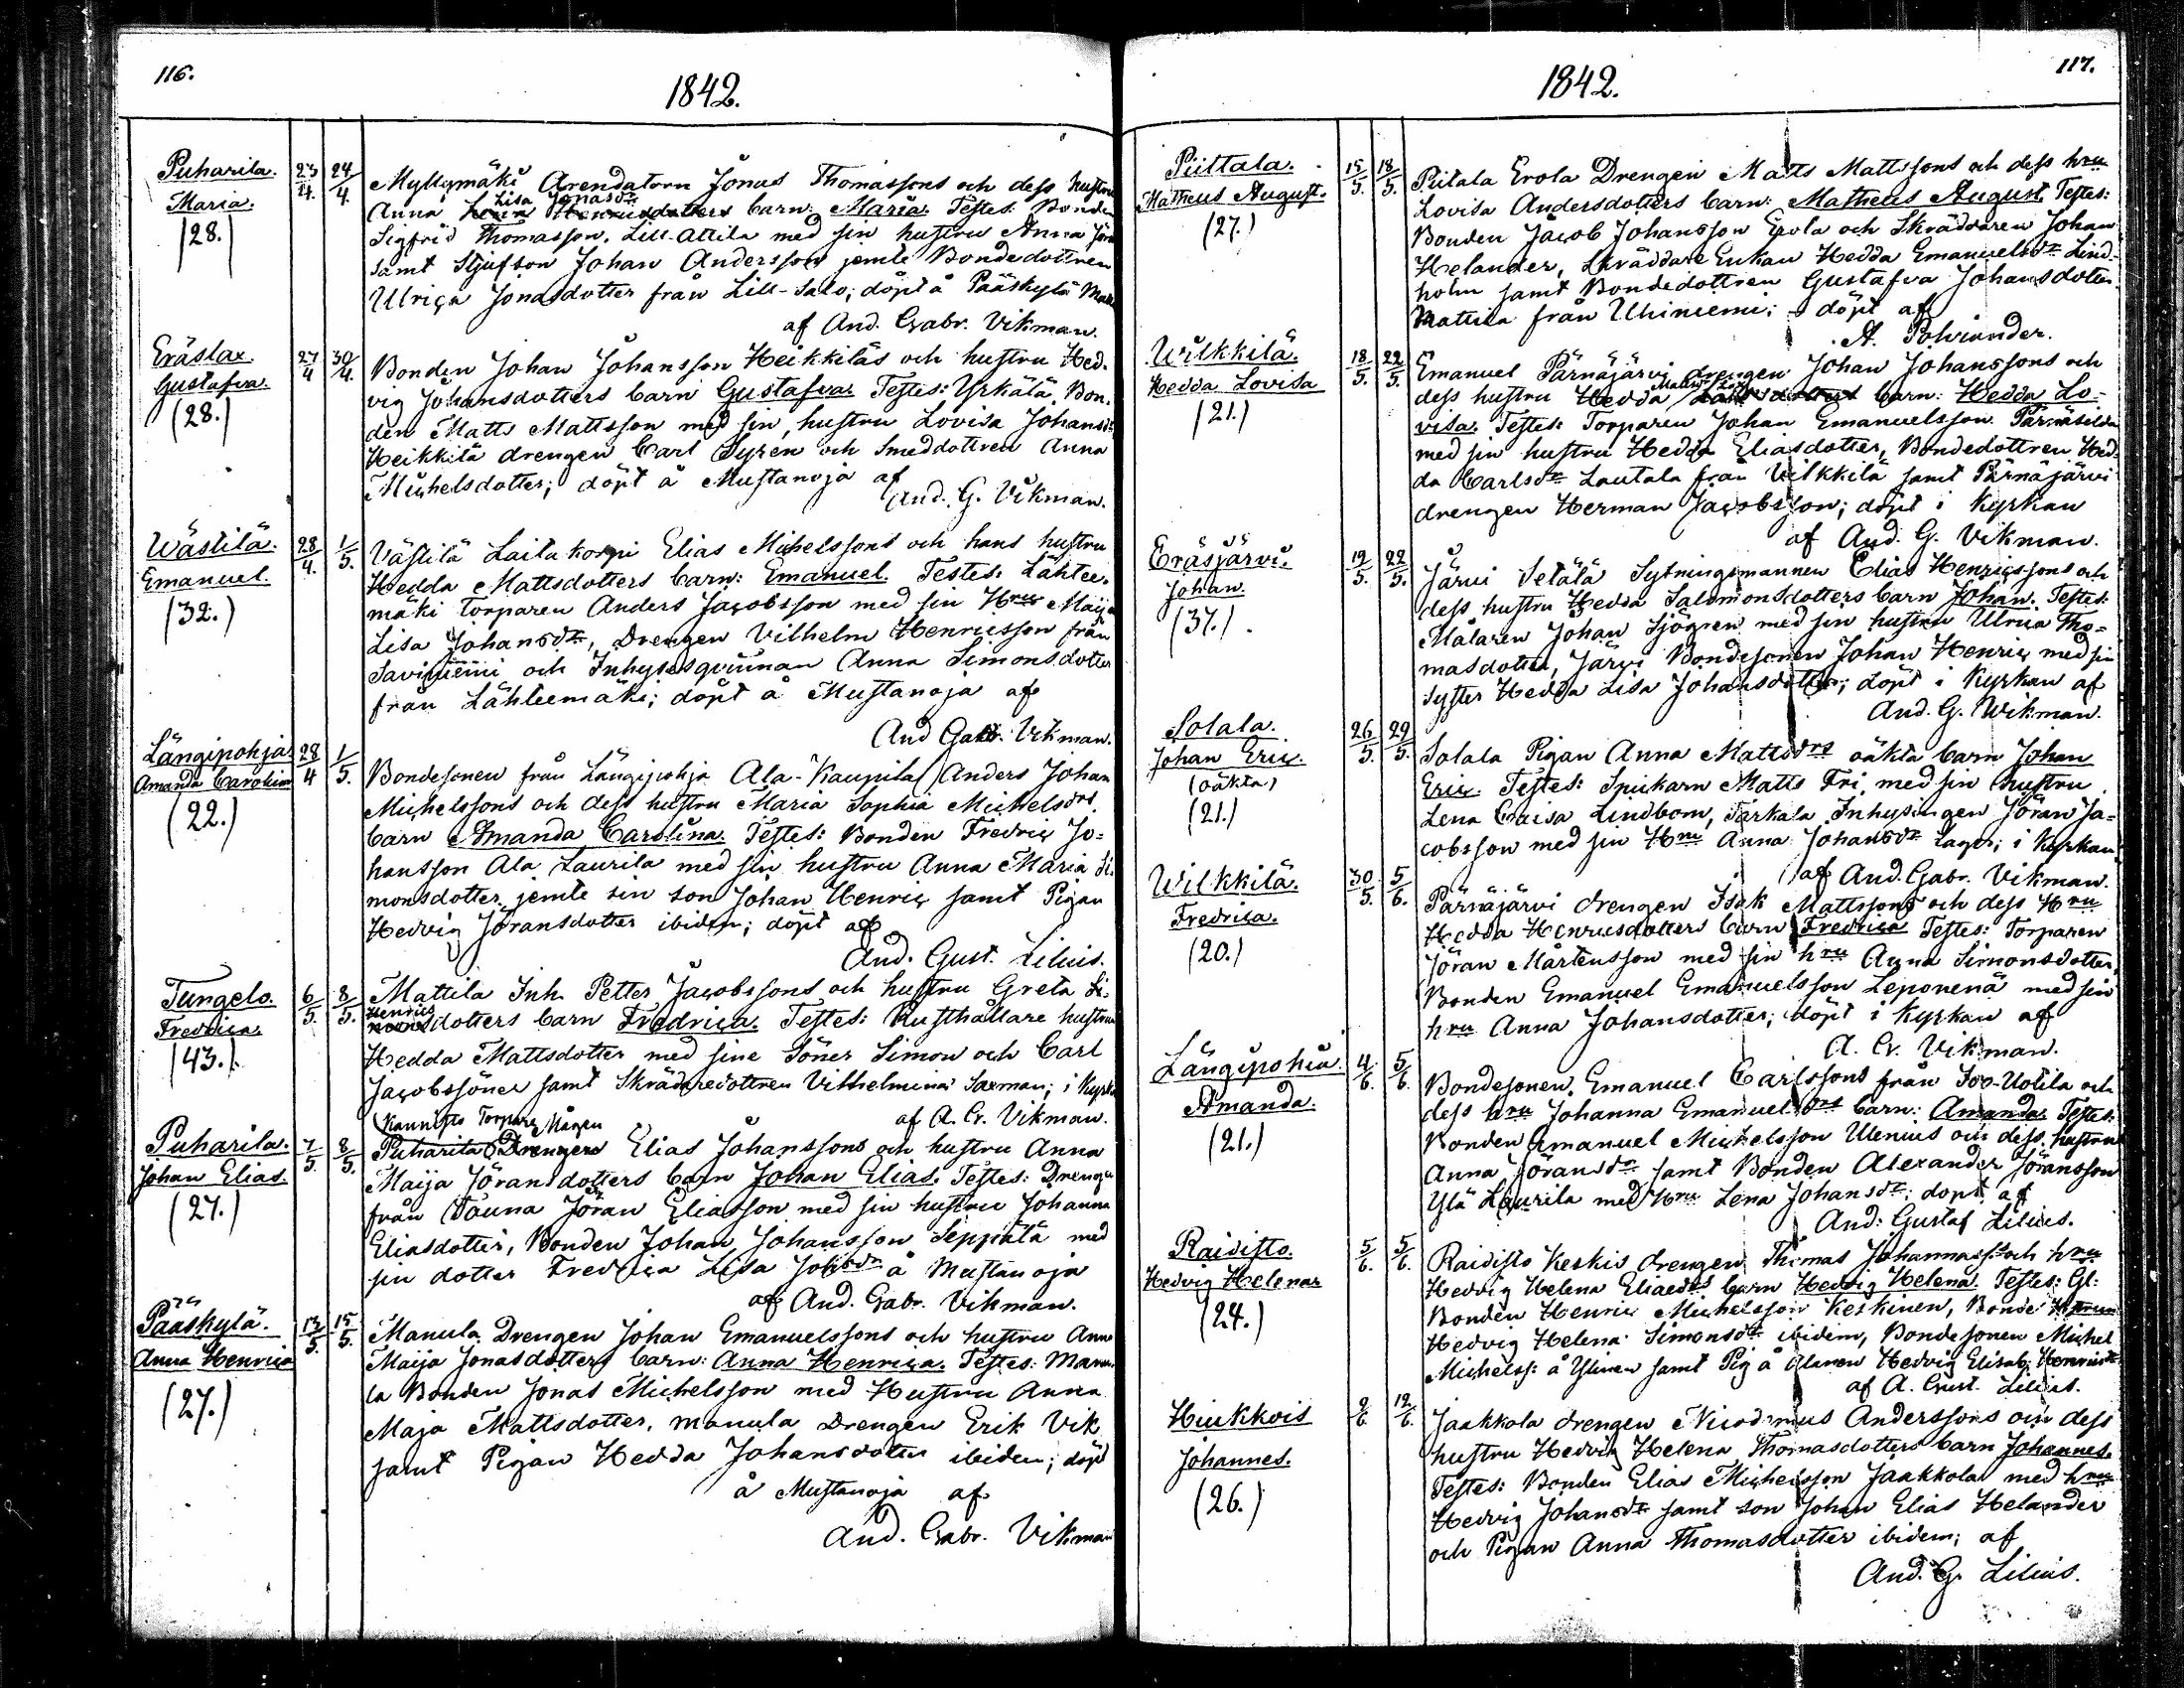 116.
1842.
Puharila.
Maria.
(28.)
23/4. 24/4.
Myllymäki Arendatorn Jonas Thomassons och dess hustru
Lisa Jonasdr
Anna barn: Maria. Testes: Bonden
Sigfrid Thomasson, Lill-Attila med sin hustru Anna
samt Stjufson Johan Andersson jemte Bondedottren
Ulrica Jonasdotter från Lill-Salo; döpt å Pääskylä
af And. Gabr. Vikman.
Eräslax.
Gustafva.
(28.)
27/4 30/4.
Bonden Johan Johansson Heikkiläs och hustru Hed-
vig Johansdotters barn Gustafva. Testes: Yrkälä Bon-
den Matts Mattsson med sin hustru Lovisa Johansdr
Heikkilä drengen Carl Syren och Smeddottren Anna
Michelsdotter; döpt å Mustanoja af
And. G. Vikman.
Wästilä.
Emanuel.
(32.)
28/4. 1/5.
Västilä Laitakorpi Elias Michelssons och hans hustru
Hedda Mattsdotters barn: Emanuel. Testes: Lähtee-
mäki Torparen Anders Jacobsson med sin Hru Maija
Lisa Johansdr, Drengen Vilhelm Henricsson från
Saviniemi och Inhysesqvinnan Anna Simonsdotter
från Lähteemäki; döpt å Mustanoja af
And Gabr. Vikman.
Längipohja
Amanda Carolina
(22.)
28/4 1/5.
Bondesonen från Längipohja Ala-Kaupila Anders Johan
Michelssons och dess hustru Maria Sophia Michelsdrs
barn Amanda Carolina. Testes: Bonden Fredric Jo-
hansson Ala Laurila med sin hustru Anna Maria Si-
monsdotter jemte sin son Johan Henric samt Pigan
Hedvig Jöransdotter ibidem; döpt af
And. Gust. Lilius.
Tungelo.
Fredrica.
(43.)
6/5. 8/5.
Mattila Inh. Petter Jacobssons och hustru Greta
Henrics
dotters barn Fredrica. Testes: Rusthållare hustrun
Hedda Mattsdotter med sine Söner Simon och Carl
Jacobssöner samt Skräddaredottren Vilhelmina Saxman; i Kyrkan
af A. G. Vikman.
Puharila.
Johan Elias.
(27.)
7/5. 8/5.
Kannisto Torpare Mågen
Puharila Drengen Elias Johanssons och hustru Anna
Maija Jöransdotters barn Johan Elias. Testes: Drengen
från Tauna Jöran Eliasson med sin hustru Johanna
Eliasdotter, Bonden Johan Johansson Seppälä med
sin dotter Fredrica Lisa Johsdr å Mustanoja
af And. Gabr. Vikman.
Pääskylä.
Anna Henrica
(27.)
13/5. 15/5.
Manula Drengen Johan Emanuelssons och hustru Anna
Maija Jonasdotters barn: Anna Henrica. Testes: Manu-
la Bonden Jonas Michelsson med Hustru Anna
Maja Mattsdotter, Manula Drengen Erik Vik
samt Pigan Hedda Johansdotter ibidem; döpt
å Mustanoja af
And. Gabr. Vikman
117.
1842.
Piittala.
Matheus August.
(27.)
15/5. 18/5.
Piitala Erola Drengen Matts Mattssons och dess hru
Lovisa Andersdotters barn: Matheus August. Testes:
Bonden Jacob Johansson Erola och Skräddaren Johan
Helander, Skräddare Enkan Hedda Emanuelsdr Lind-
holm samt Bondedottren Gustafva Johansdotter
Mattila från Uhiniemi; döpt af
A. Polviander.
Wilkkilä.
Hedda Lovisa
(21.)
18/5. 22/5.
Emanuel Pärnäjärvi drengen Johan Johanssons och
dess hustru Hedda barn: Hedda Lo-
visa. Testes: Torparen Johan Emanuelsson Pärnäsilda
med sin hustru Hedda Eliasdotter, Bondedottren Hed-
da Carlsdr Lautala från Vilkkilä samt Pärnäjärvi
drengen Herman Jacobsson; döpt i Kyrkan
af And. G. Vikman.
Eräsjärvi.
Johan.
(37.)
19/5. 22/5.
Järvi Setälä Sytningsmannen Elias Henricssons och
dess hustru Hedda Salomonsdotters barn Johan. Testes:
Målaren Johan Sjögren med sin hustru Ulrica Tho-
masdotter, Järvi Bondesonen Johan Henric med sin
syster Hedda Lisa Johansdotter; döpt i Kyrkan af
And. G. Wikman.
Solala.
Johan Eric.
(oäkta)
(21.)
26/5. 29/5.
Solala Pigan Anna Mattsdrs oäkta barn Johan
Eric. Testes: Spickarn Matts Fri, med sin hustru
Lena Caisa Lindbom, Tarkala Inhysingen Jöran Ja-
cobsson med sin Hru Anna Johansdr Lager; i Kyrkan
af And. Gabr. Vikman.
Wilkkilä.
Fredrica.
(20.)
30/5. 5/6.
Pärnäjärvi drengen Isak Mattssons och dess Hru
Hedda Henricsdotters barn Fredrica Testes: Torparen
Jöran Mårtensson med sin hru Anna Simonsdotter,
Bonden Emanuel Emanuelsson Leponenä med sin
hru Anna Johansdotter; döpt i Kyrkan af
A. G. Vikman.
Längipohia
Amanda.
(21.)
4/6. 5/6.
Bondesonen Emanuel Carlssons från Iso-Uotila och
dess hru Johanna Emanuelsdrs barn: Amanda. Testes:
Bonden Emanuel Michelsson Ulenius och dess hustru
Anna Jöransdr samt Bonden Alexander Jöransson
Ylä Laurila med Hru Lena Johansdr; döpt af
And. Gustaf Lilius.
Raidisto.
Hedvig Helena
(24.)
5/6. 5/6.
Raidisto Keskis drengen Thomas Johannass och hru
Hedvig Helena Eliaedrs barn Hedvig Helena. Testes: Gl:
Bonden Henric Michelsson Keskinen, Bonde Hrun
Hedvig Helena Simonsdr ibidem, Bondesonen Michel
Michelss: å Ylinen samt Pig å Alanen Hedvig Elisab: Henricsdr
af A. Gust. Lilius.
Hiukkois
Johannes.
(26.)
9/6. 12/6.
Jaakkola drengen Nicodemus Anderssons och dess
hustru Hedvig Helena Thomasdotters barn Johannes.
Testes: Bonden Elias Michelsson Jaakkola med hru
Hedvig Johansdr samt son Johan Elias Helander
och Pigan Anna Thomasdotter ibidem; af
And. G. Lilius.